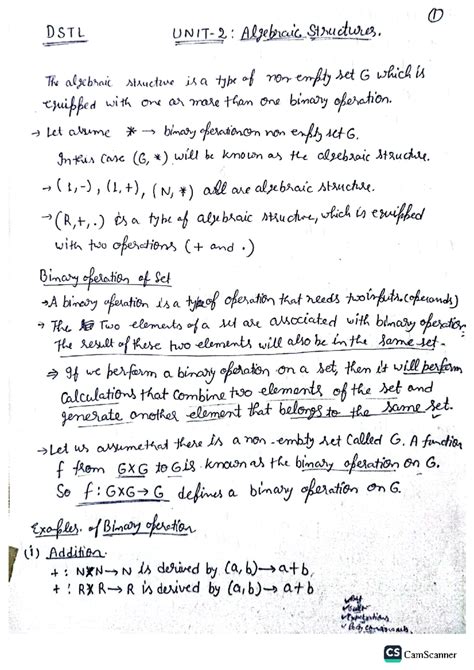 ①
DSTL UNIT-2: Algebraic Structures.
The algebraic structure is a type of non-empty set G which is
equipped with one or more than one binary operation.
→ Let assume * → binary operation on non empty set G.
In this case (G, *) will be known as the algebraic structure.
→ (1,-), (1,+), (N,*) all are algebraic structure.
→ (R,+,.) is a type of algebraic structure, which is equipped
with two operations (+ and .)
Binary operation of Set
→ A binary operation is a type of operation that needs two inputs. (operands)
→ The Two elements of a set are associated with binary operation.
The result of these two elements will also be in the same set.
⇒ If we perform a binary operation on a set, then it will perform
calculations that combine two elements of the set and
generate another element that belongs to the same set.
→ Let us assume that there is a non-empty set called G. A function
f from G×G to G is known as the binary operation on G.
So f: G×G → G defines a binary operation on G.
Examples of Binary operation
(i) Addition.
+ : N×N → N is derived by (a,b) → a+b,
+ : R×R → R is derived by (a,b) → a+b
CS CamScanner